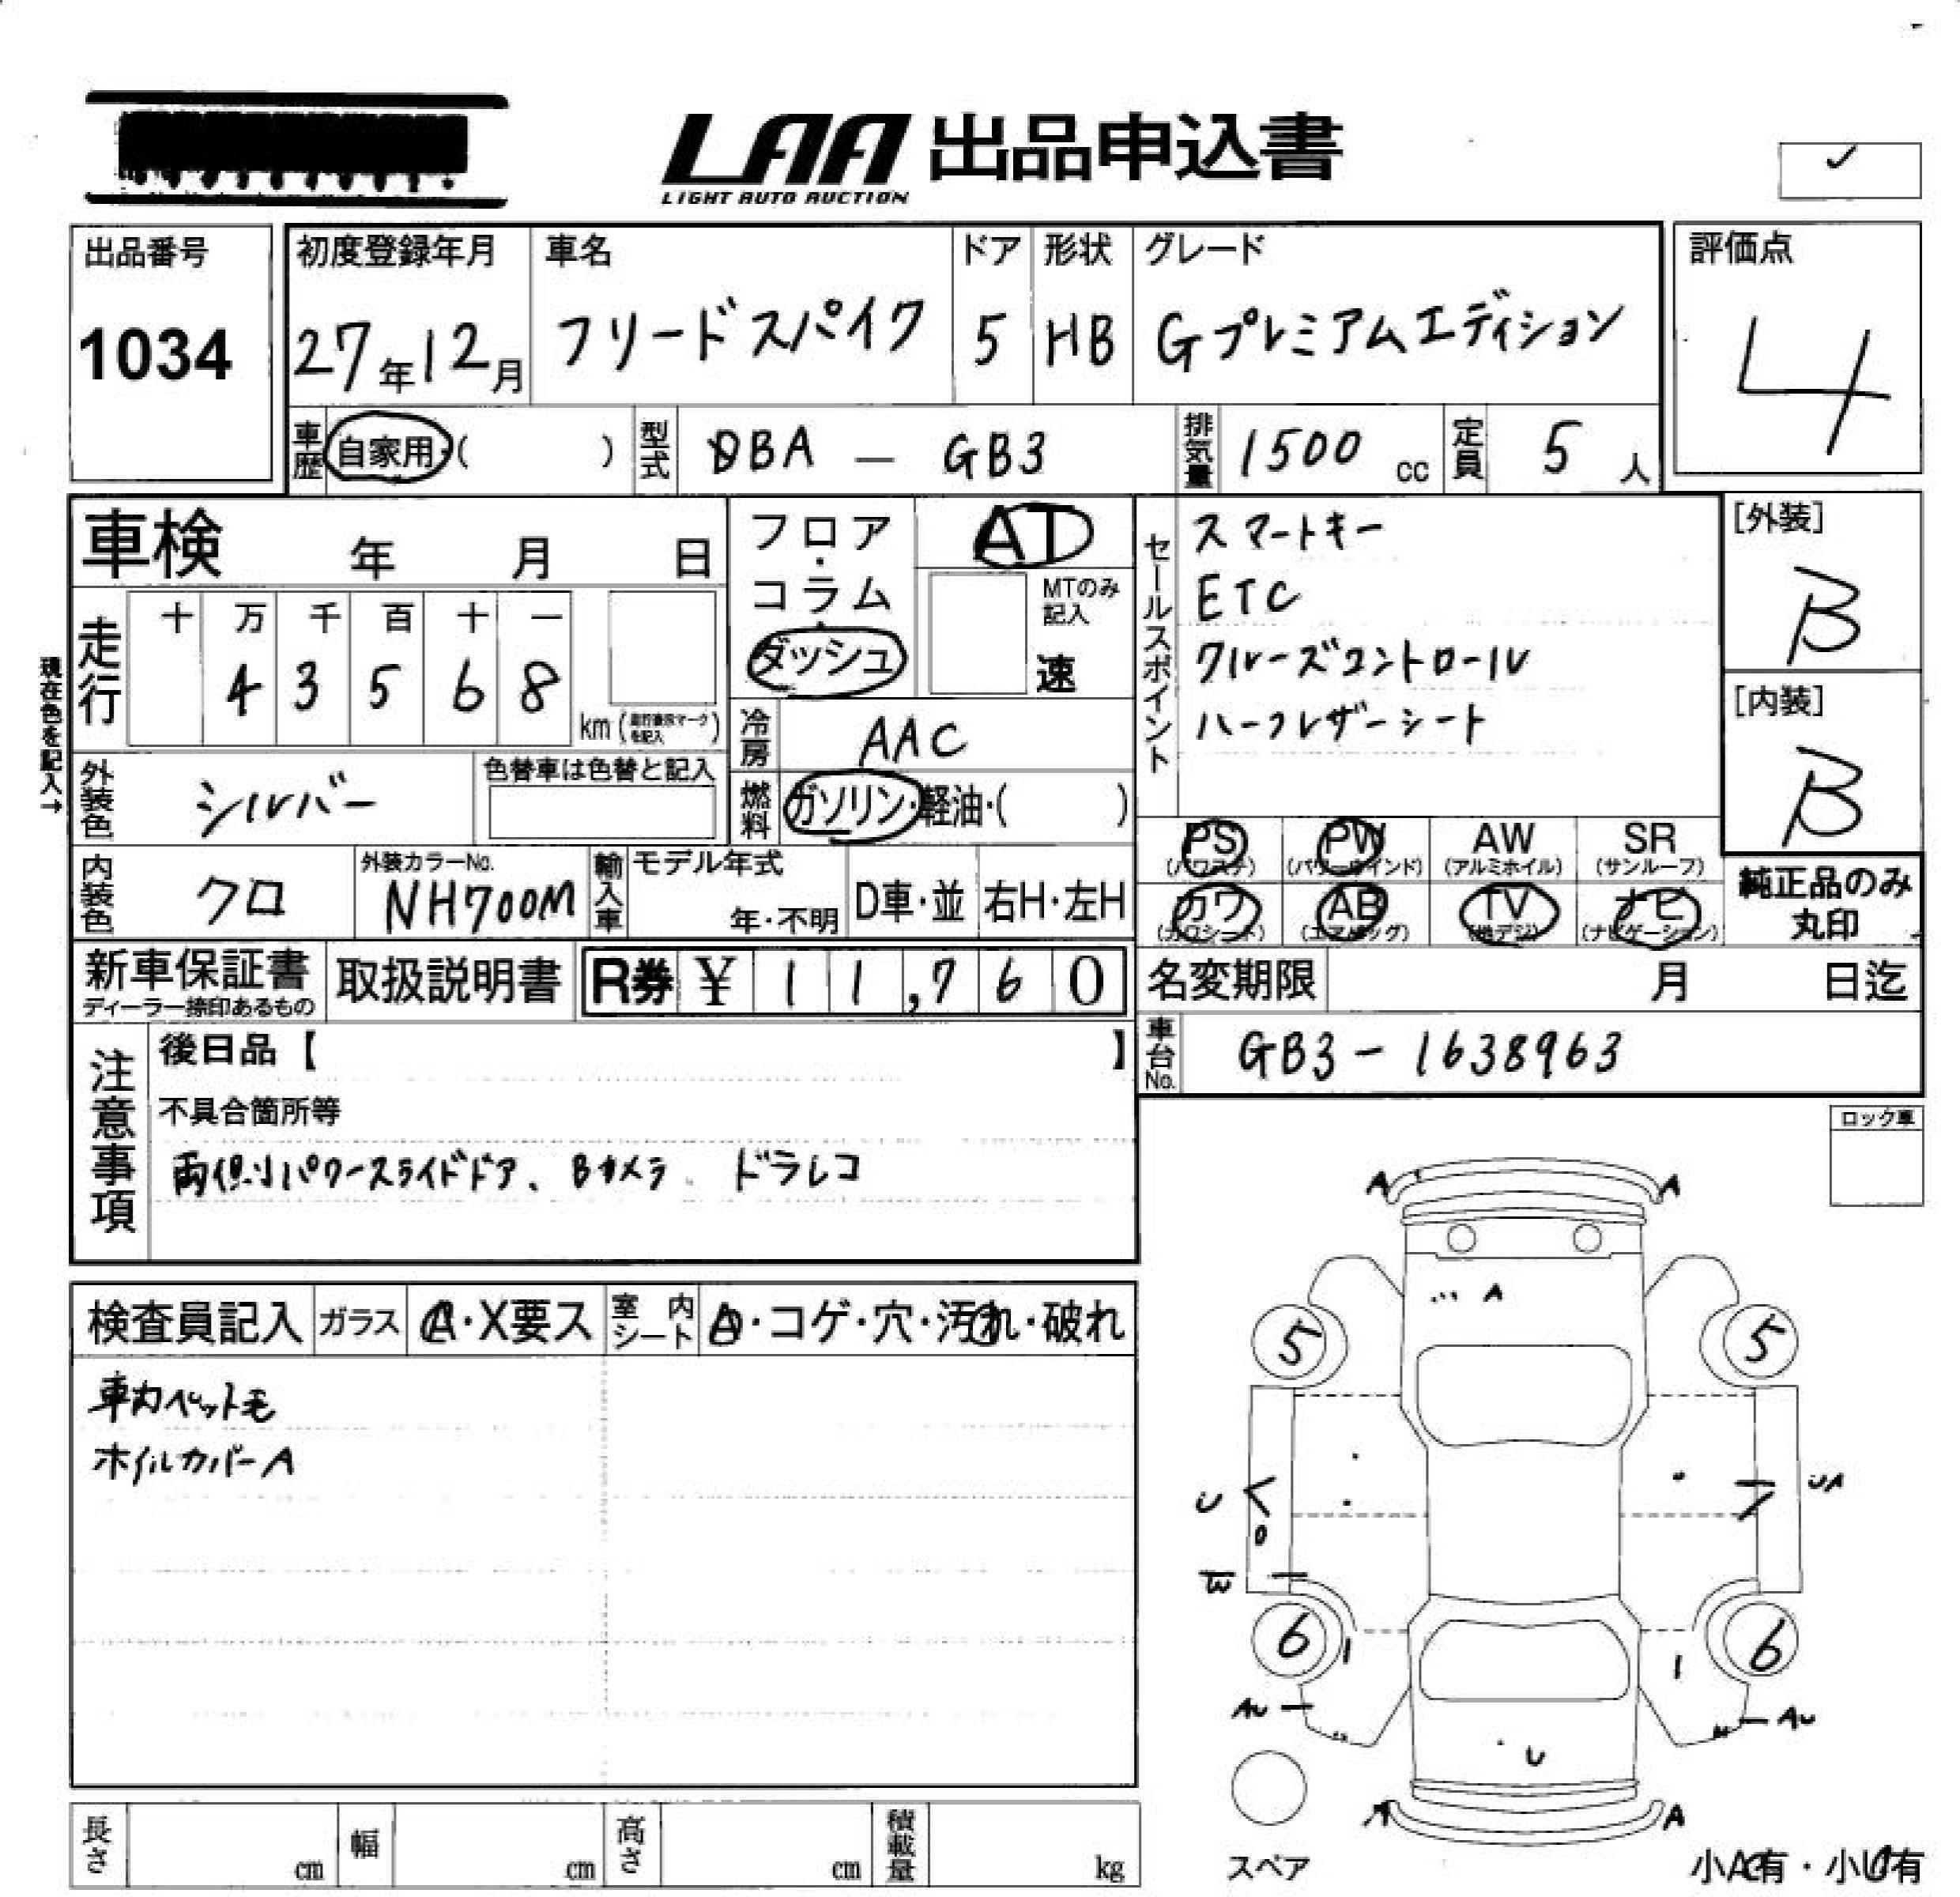 LAA 出品申込書
LIGHT AUTO AUCTION
✓
出品番号
1034
初度登録年月
27年12月
車名
フリードスパイク
ドア
5
形状
HB
グレード
Gプレミアムエディション
評価点
4
車歴 自家用・( )
型式 DBA — GB3
排気量 1500 cc
定員 5 人
車検 年 月 日
走行
十 万 千 百 十 一
4 3 5 6 8
km
現在色を記入→
外装色 シルバー
色替車は色替と記入
内装色 クロ
外装カラーNo.
NH700M
フロア・コラム・ダッシュ
AT
MTのみ記入
速
冷房 AAC
燃料 ガソリン・軽油・( )
輸入車 モデル年式
年・不明
D車・並
右H・左H
セールスポイント
スマートキー
ETC
クルーズコントロール
ハーフレザーシート
[外装]
B
[内装]
B
PS (パワステ)
PW (パワーウインド)
AW (アルミホイル)
SR (サンルーフ)
カワ (カワシート)
AB (エアバッグ)
TV (地デジ)
ナビ (ナビゲーション)
純正品のみ
丸印
新車保証書
ディーラー捺印あるもの
取扱説明書
R券 ¥ 11,760
名変期限 月 日迄
車台No. GB3-1638963
注意事項
後日品【 】
不具合箇所等
両側パワースライドドア、Bカメラ、ドラレコ
ロック車
検査員記入
ガラス
A・X要ス
室内シート
A・コゲ・穴・汚れ・破れ
車内ペット毛
ホイルカバーA
A A
A
5 5
U
UA
W
6 6
AU AU
U
A A
スペア
小A有・小U有
長さ cm
幅 cm
高さ cm
積載量 kg